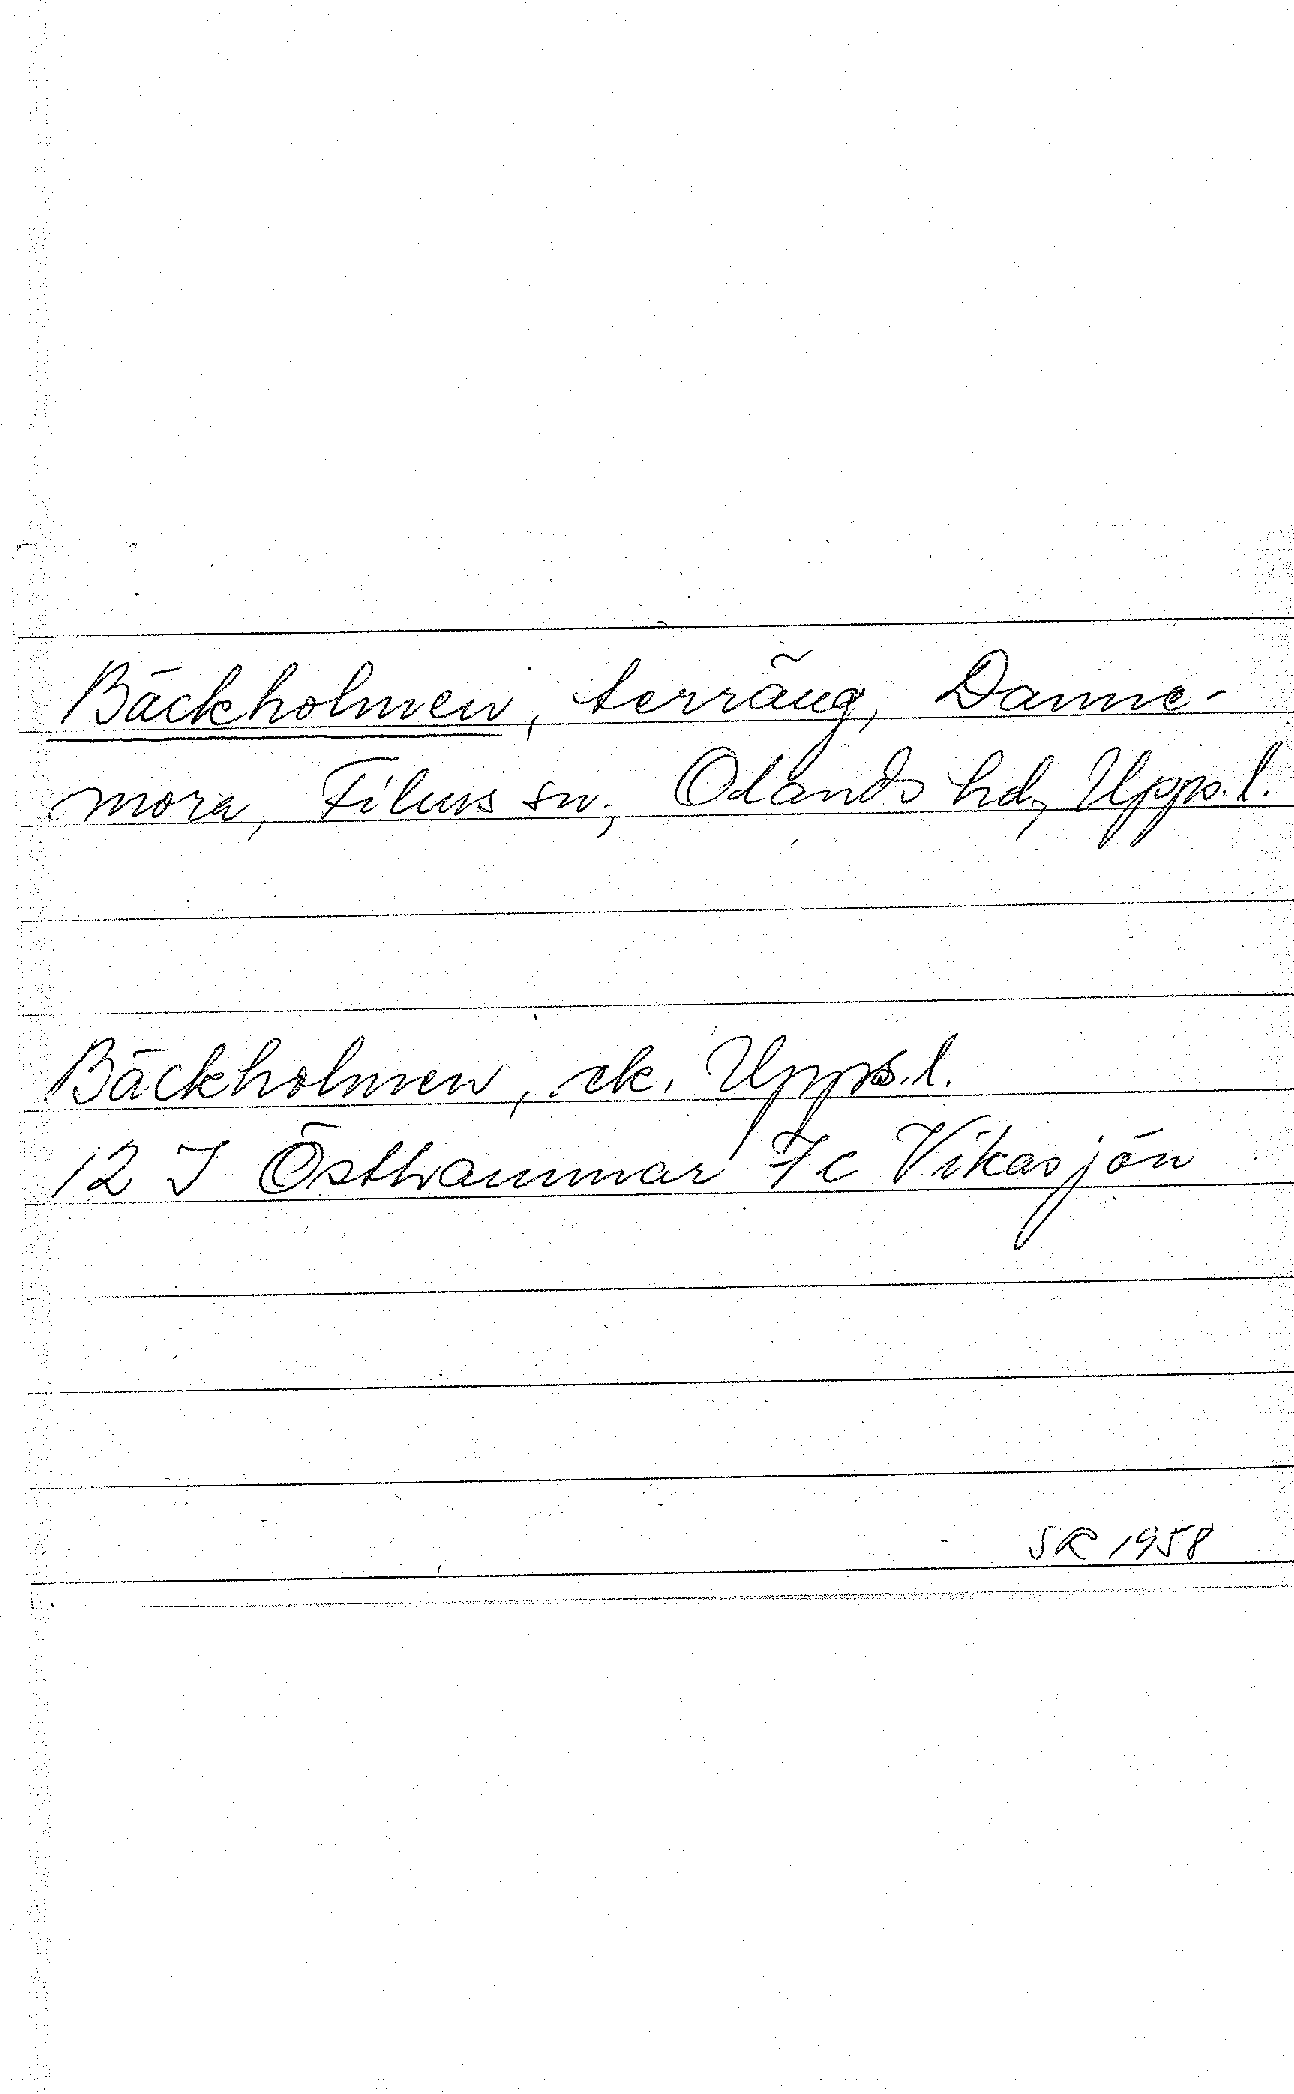 Bäckholmen, terräng, Danne-
mora, Films sn, Olands hd, Upps. l.
Bäckholmen, ek. Upps. l.
12 I Östhammar 7c Vikasjön
SR 1958